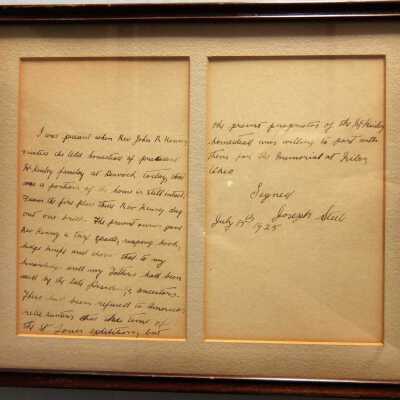 I was present when Rev John R Henry
visited the old homestead of president
McKinley family at Dervock today, there
was a portion of the home is still intact.
From the fire place there Rev Henry dug
out one brick. The present owner gave
Rev Henry a key, spade, reaping hook,
hedge knife and that to my
knowledge and my Fathers had been
used by the late Presidents ancestors.
These had been refused to American
relic hunters the time of
the St Louis expedition, but
the present proprietor of the McKinley
homestead was willing to part with
them for the Memorial at
Ohio
Signed
Joseph
July 1925